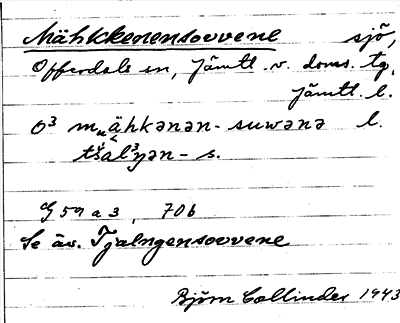 Mähkkenensovvene sjö,
Offerdals sn, Jämtl. v. doms. tg,
Jämtl. l.
O³ mᵤähkənən- suwənə l.
tšal³ŋən- s.
G 59 a 3, 70b
Se äv. Tjalngensovvene
Björn Collinder 1943